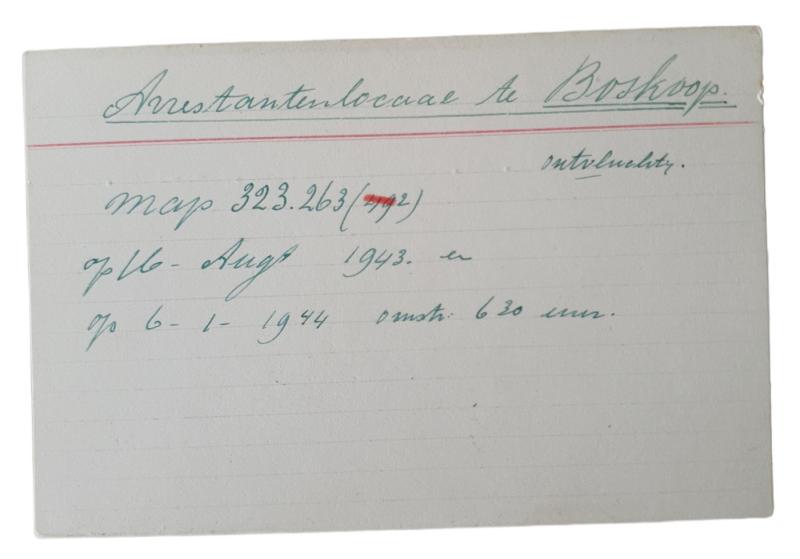 Arrestantenlocaal te Boskoop.
ontvluchtg.
map 323.263 (492)
op 16 - Augt 1943. en
op 6 - 1 - 1944 omstr. 6 30 uur.